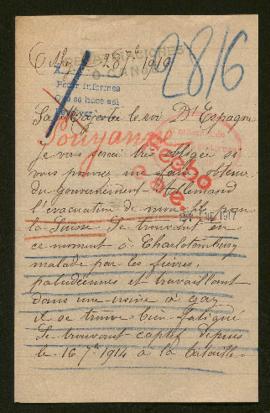 28 7bre 1919
2816
Pedir informes
Sa Majesté le roi D'Espagne
Pouyanne
je vous serai très obligée si
vous pouvez me faire obtenir
du Gouvernement Allemand
l'évacuation de mon fils pour
la Suisse. Se trouvant en
ce moment à
malade par les fièvres
paludéennes et travaillant
dans une usine à gaz
il se trouve bien fatigué
Se trouvant captif depuis
le 16 7bre 1914 à la bataille
Hecho
1917